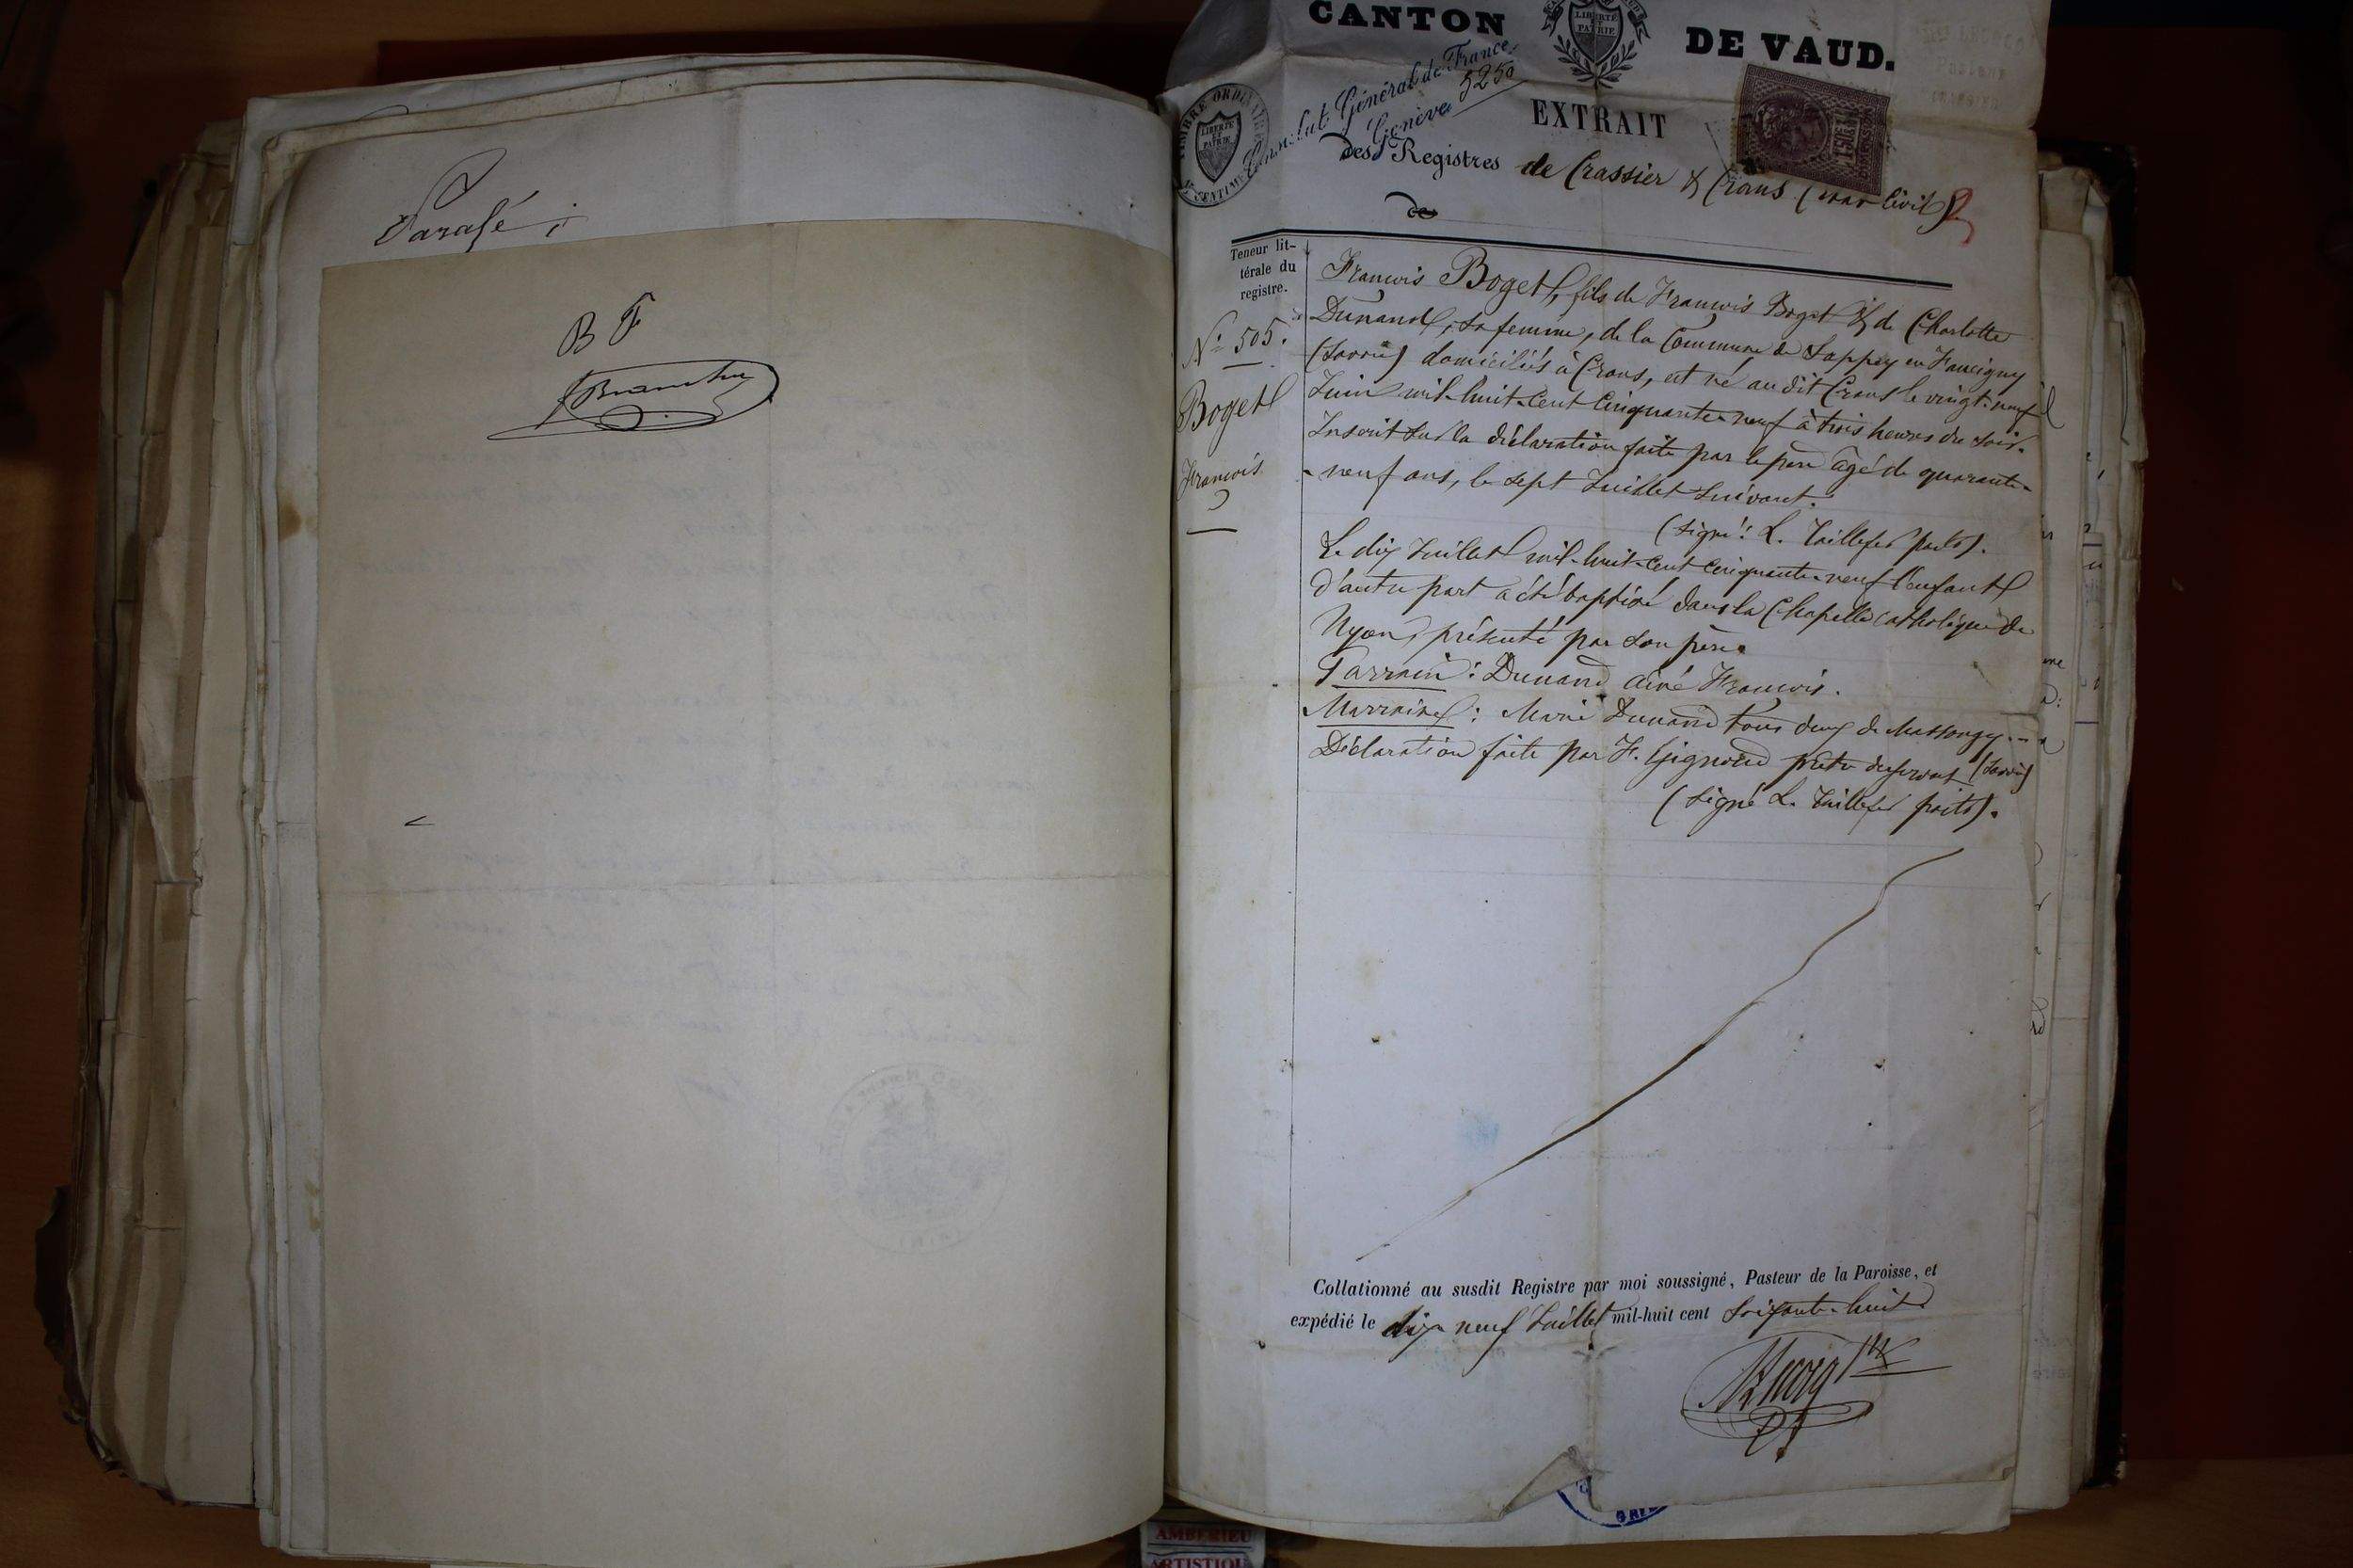 Parafé :
B F
CANTON DE VAUD.
LIBERTÉ ET PATRIE
Consulat Général de France
Genève 5250
TIMBRE ORDINAIRE
LIBERTÉ ET PATRIE
CENTIMES
EXTRAIT
des Registres de Crassier & Crans (état civil)
de
Teneur lit-
térale du
registre.
N° 505.
Boget
François
François Boget, fils de François Boget & de Charlotte
Dunand, sa femme, de la Commune de Sappey en Faucigny
(Savoie) domiciliés à Crans, est né au dit Crans le vingt-neuf
Juin mil-huit-cent cinquante-neuf à trois heures du soir.
Inscrit sur la déclaration faite par le père âgé de quarante-
neuf ans, le sept Juillet suivant.
(signé: L. Taillefer past.).
Le dix Juillet mil-huit-cent cinquante-neuf l'enfant
d'autre part a été baptisé dans la Chapelle catholique de
Nyon, présenté par son père.
Parrain : Dunand aîné François.
Marraine : Marie Dunand tous deux de Massongy
Déclaration faite par F. Gignoud prêtre desservant (Savoie)
(signé L. Taillefer past.).
Collationné au susdit Registre par moi soussigné, Pasteur de la Paroisse, et
expédié le dix neuf Juillet mil-huit cent soixante-huit.
AMBERIEU
ARTISTIQU